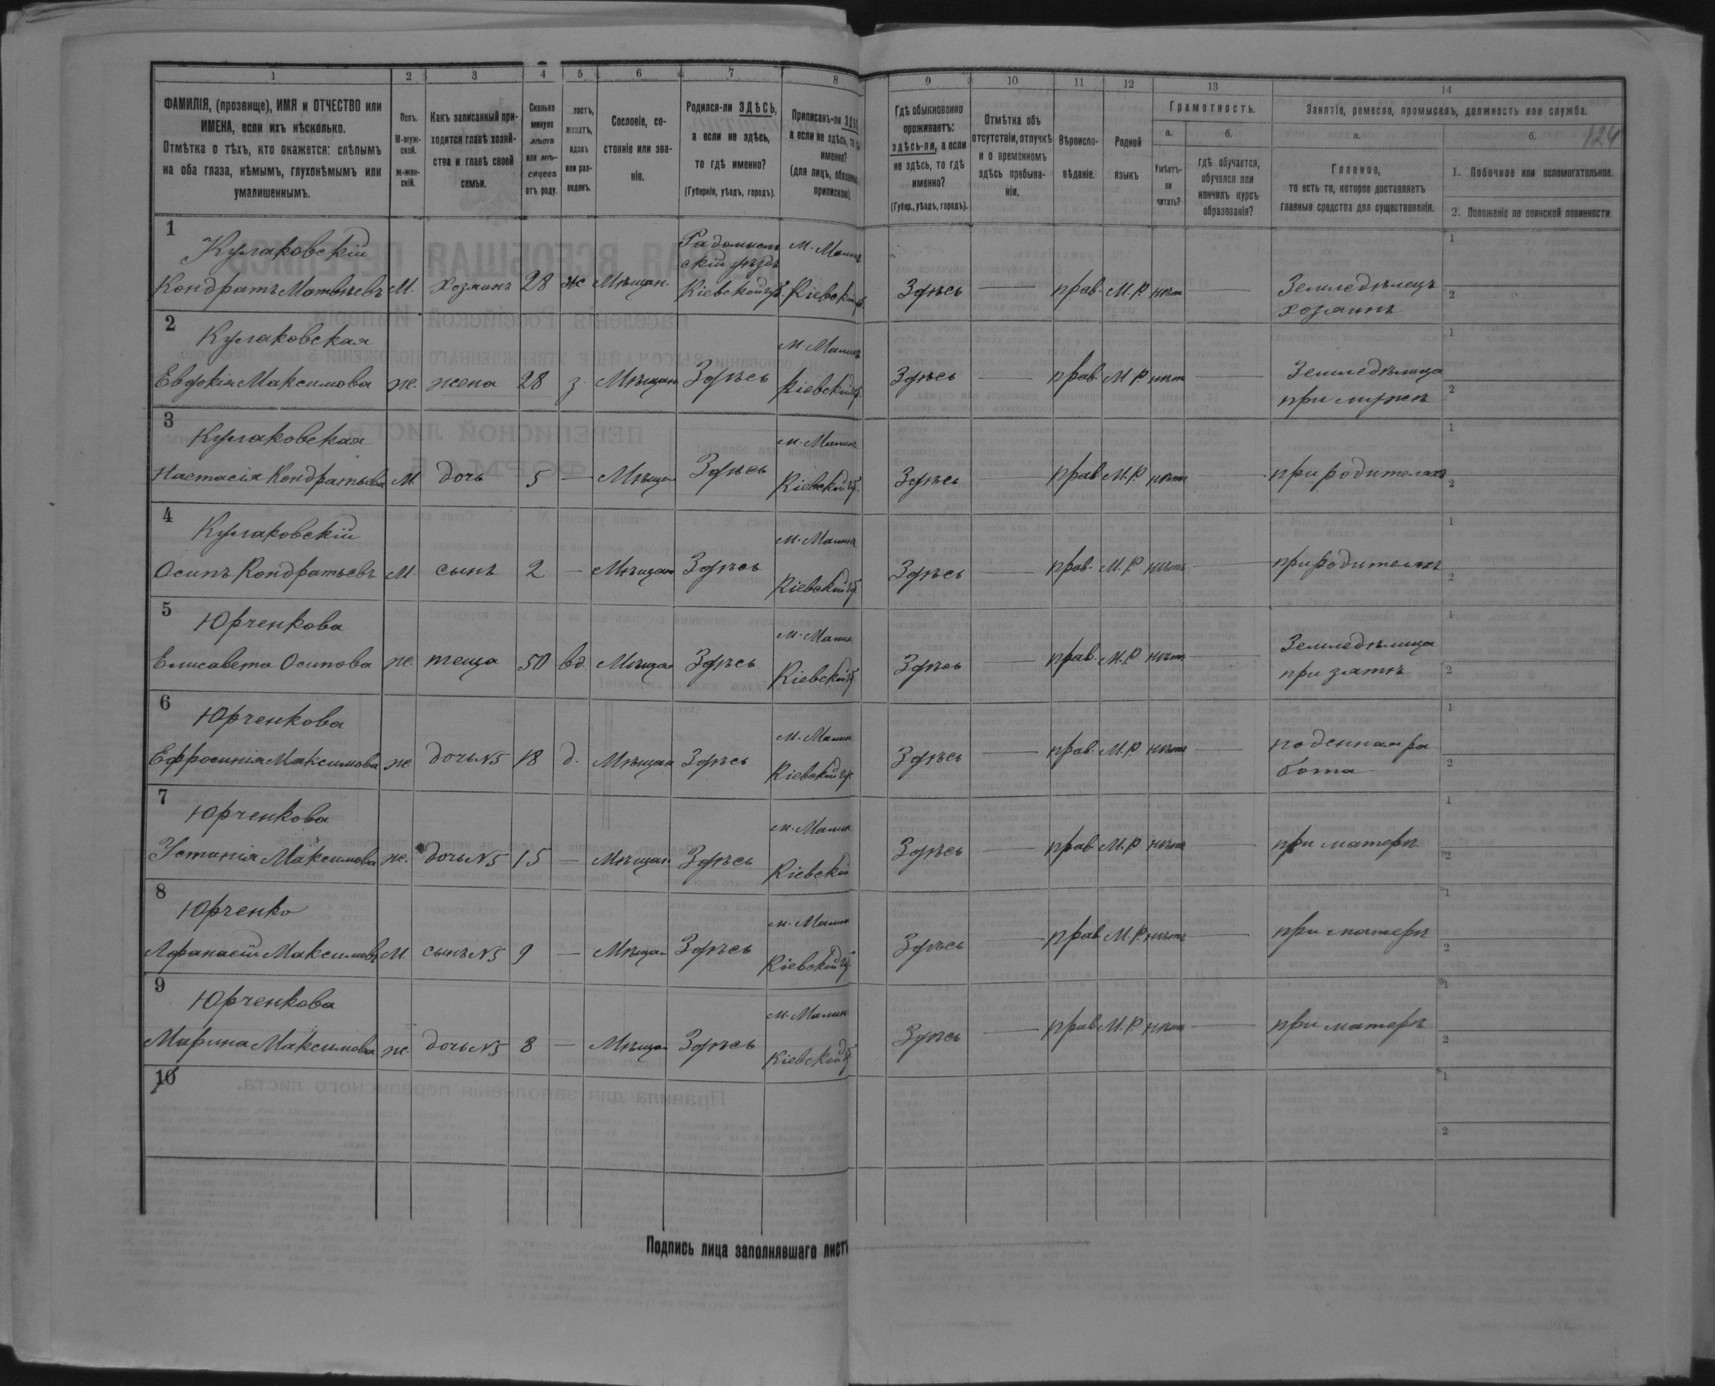 1 2 3 4 5 6 7 8 9 10 11 12 13 14
ФАМИЛІЯ, (прозвище), ИМЯ и ОТЧЕСТВО или
ИМЕНА, если ихъ нѣсколько.
Отмѣтка о тѣхъ, кто окажется: слѣпымъ
на оба глаза, нѣмымъ, глухонѣмымъ или
умалишеннымъ.
Полъ.
М-муж-
ской.
ж-жен-
скій.
Какъ записанный при-
ходится главѣ хозяй-
ства и главѣ своей
семьи.
Сколько
минуло
лѣтъ
или мѣ-
сяцевъ
отъ роду.
лостъ,
женатъ,
вдовъ
или раз-
веденъ.
Сословіе, со-
стояніе или зва-
ніе.
Родился-ли ЗДѢСЬ,
а если не здѣсь,
то гдѣ именно?
(Губернія, уѣздъ, городъ).
Приписанъ-ли ЗДѢ
а если не здѣсь, то
именно?
(для лицъ,
припискою)
Гдѣ обыкновенно
проживаетъ:
здѣсь-ли, а если
не здѣсь, то гдѣ
именно?
(Губер., уѣздъ, городъ).
Отмѣтка объ
отсутствіи, отлучкѣ
и о временномъ
здѣсь пребыва-
ніи.
Вѣроиспо-
вѣданіе.
Родной
языкъ
Грамотность.
а.
Умѣетъ-
ли
читать?
б.
гдѣ обучается,
обучался или
кончилъ курсъ
образованія?
Занятіе, ремесло, промыселъ, должность или служба.
а.
Главное,
то есть то, которое доставляетъ
главныя средства для существованія.
б. 124
1. Побочное или вспомогательное.
2. Положеніе по воинской повинности
1
Кулаковскій Радомысль м. Малин
скій уѣздъ
Кондратъ Матвѣевъ М. хозяинъ 28 ж Мѣщан. Кіевской губ. Кіевской Здѣсь — прав. М.Р нѣт — Земледѣлецъ
хозяинъ
1
2
2
Кулаковская м. Малинъ
Евдокія Максимова ж. жена 28 з. Мѣщан Здѣсь Кіевской Здѣсь — прав. М.Р нѣт — Земледѣлица
при мужѣ
1
2
3
Кулаковская м. Малин
Настасія Кондратьева М. дочь 5 — Мѣщан Здѣсь Кіевской Здѣсь — прав. М.Р. нѣт — при родителяхъ
1
2
4
Кулаковскій м. Малин
Осипъ Кондратьевъ М. сынъ 2 — Мѣщан Здѣсь Кіевской Здѣсь — прав. М.Р нѣт — при родителях
1
2
5
Юрченкова м. Малин
Елисавета Осипова ж. теща 50 вд. Мѣщан Здѣсь Кіевской Здѣсь — прав. М.Р нѣт — Земледѣлица
при зятѣ
1
2
6
Юрченкова м. Малин
Ефросинія Максимова ж дочь №5 18 д. Мѣщан Здѣсь Кіевской Здѣсь — прав. М.Р нѣт — поденная ра
бота
1
2
7
Юрченкова м. Малин
Устинія Максимова ж. дочь №5 15 — Мѣщан Здѣсь Кіевской Здѣсь — прав. М.Р нѣт — при матерѣ
1
2
8
Юрченко м. Малин
Афанасій Максимовъ М. сынъ №5 9 — Мѣщан Здѣсь Кіевской Здѣсь — прав. М.Р. нѣт — при матерѣ
1
2
9
Юрченкова м. Малин
Марина Максимова ж. дочь №5 8 — Мѣщан Здѣсь Кіевской Здѣсь — прав М.Р нѣт — при матерѣ
1
2
10
1
2
Подпись лица заполнявшаго листъ